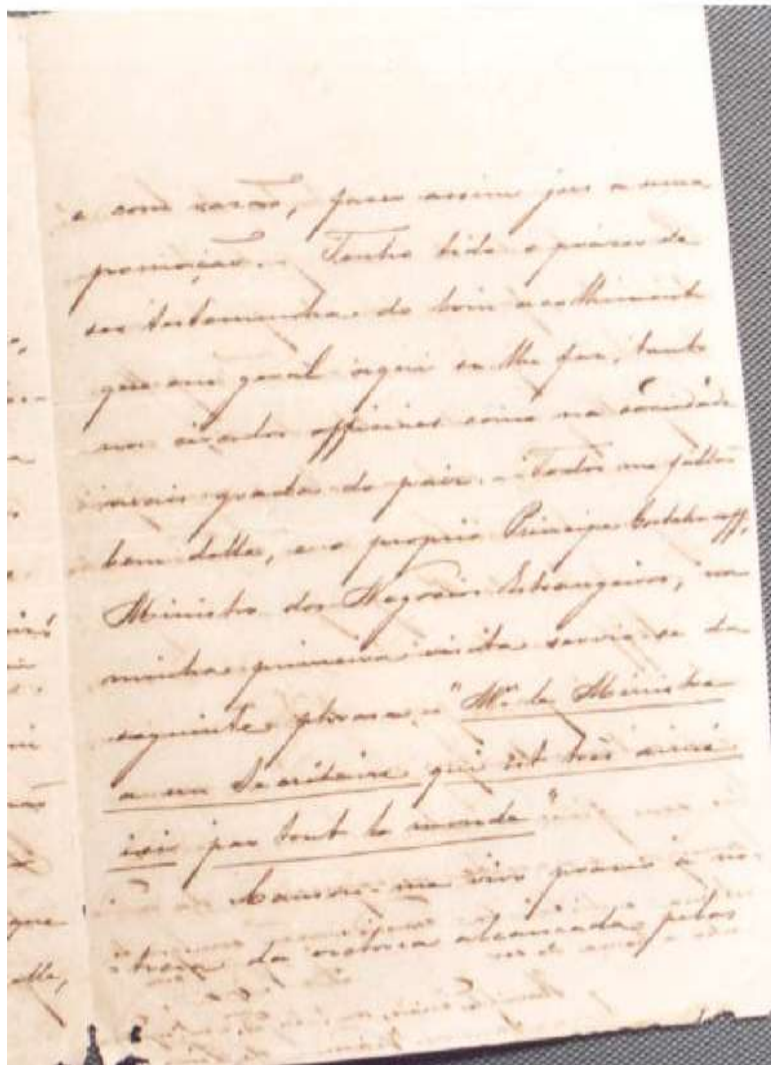 e com razão, fazer assim jus a uma
promoção. Tenho tido o prazer de
ser testemunha do bom acolhimento
que em geral aqui se lhe faz, tanto
nos circulos officiaes como na sociedade
mais grada do paiz. Todos me fallão
bem delle, e o proprio Principe Gortchacoff,
Ministro dos Negocios Estrangeiros, na
minha primeira visita servio-se da
seguinte phrase: "Mr. le Ministre
a un Secrétaire qui est très aimé
ici par tout le monde"
Causou-me vivo prazer a no-
ticia da victoria alcançada pelas